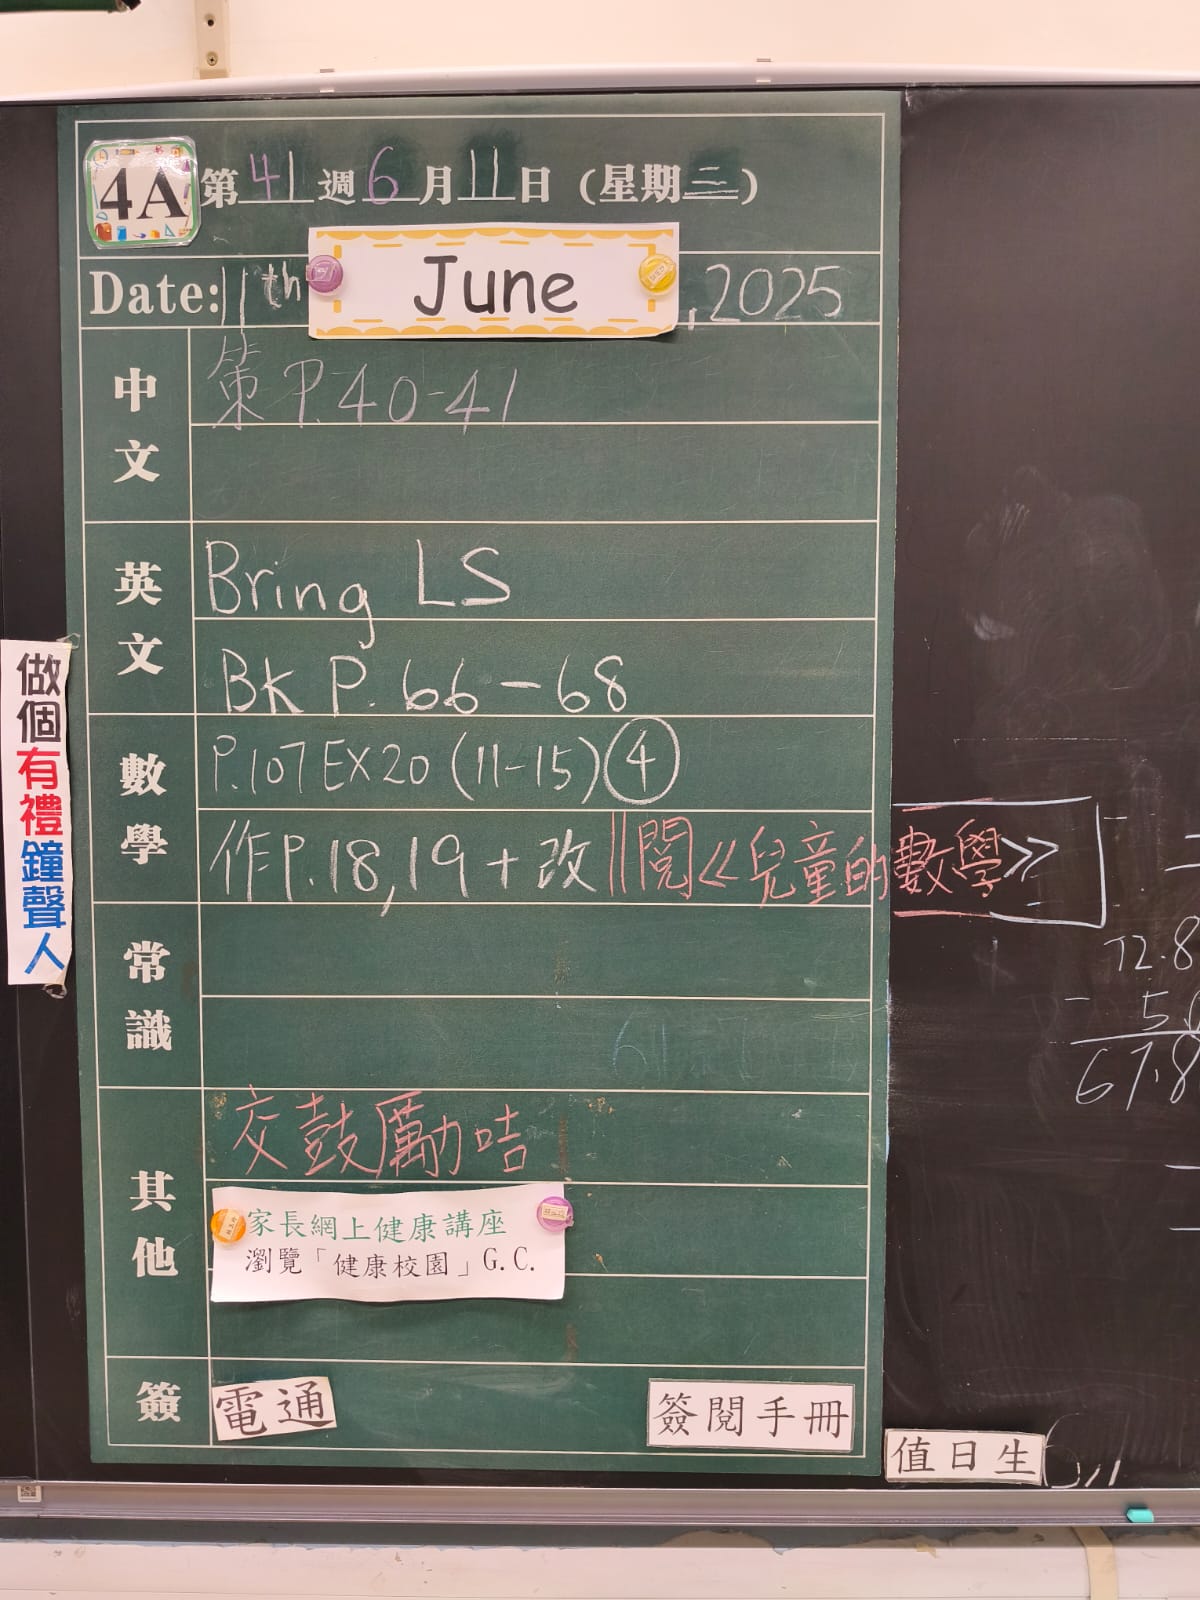 4A 第41週6月11日(星期三)
Date:11th June,2025
中文
策P.40-41
英文
Bring LS
BK P.66-68
數學
P.107 EX20 (11-15)④
作P.18,19+改||閱《兒童的數學》
常識
其他
交鼓勵咭
家長網上健康講座
瀏覽「健康校園」G.C.
簽
電通
簽閱手冊
值日生
做個有禮鐘聲人
72.8
67.8